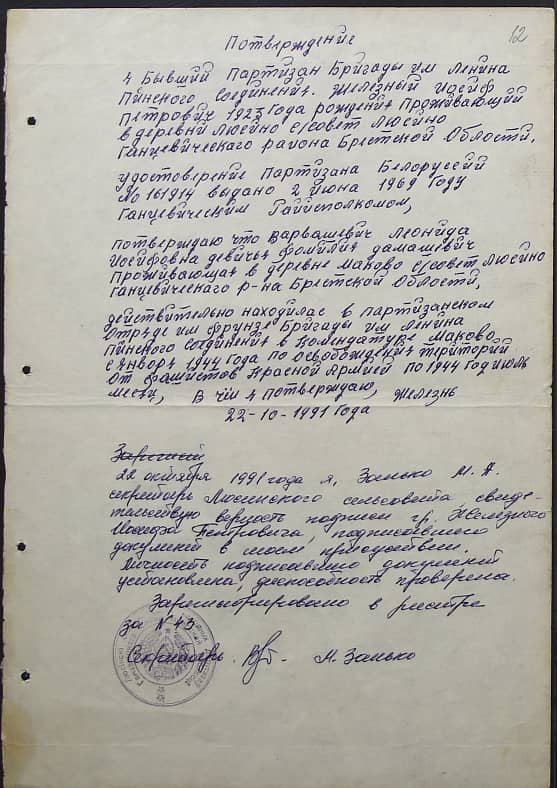 62
Потверждение
Я Бывший Партизан Бригады им Ленина
Пинского соединения. Железный Иосиф
Петрович 1923 года рождения Проживающий
в деревни Люсино с/совет Люсино
Ганцевического района Брестской Области.
удостоверение Партизана Белоруссий
№ 161914 выдано 2 Июня 1969 году
Ганцевическим Гайисполкомом,
потверждаю что Варвашевич Леонида
Иосифовна девичья фомилия дамашевич
Проживающая в деревне Маково с/совет Люсино
Ганцевичнскаго р-на Брестской Области,
действительно находилас в партизанском
Отряде им Фрунзе Бригады им Ленина
Пинского соединения в Комендатуре Маково
с января 1944 года по освобождения територий
от фашистов Красной Армией по 1944 год июль
месяц, в чём я потверждаю, Железн
22-10-1991 года
22 октября 1991 года я, Занько М. А.
секретарь Люсинского сельсовета, свиде-
тельствую верность подписи гр. Железного
Иосифа Петровича, подписавшего
документ в моем присутствии.
Личность подписавшего документ
установлена, дееспособность проверена.
Зарегистрировано в реестре
за № 43
Секретарь М. Занько